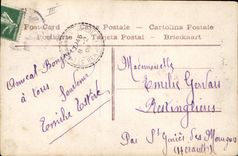 Post-Card Carte Postale Cartolina Postale
Postkarte Tarjeta Postal Briefkaart
Amical Bonjour
à tous
Emilie
Mademoiselle
Emilie Gervais
Restinclières
Par St Geniès des Mourgues
(Hérault)